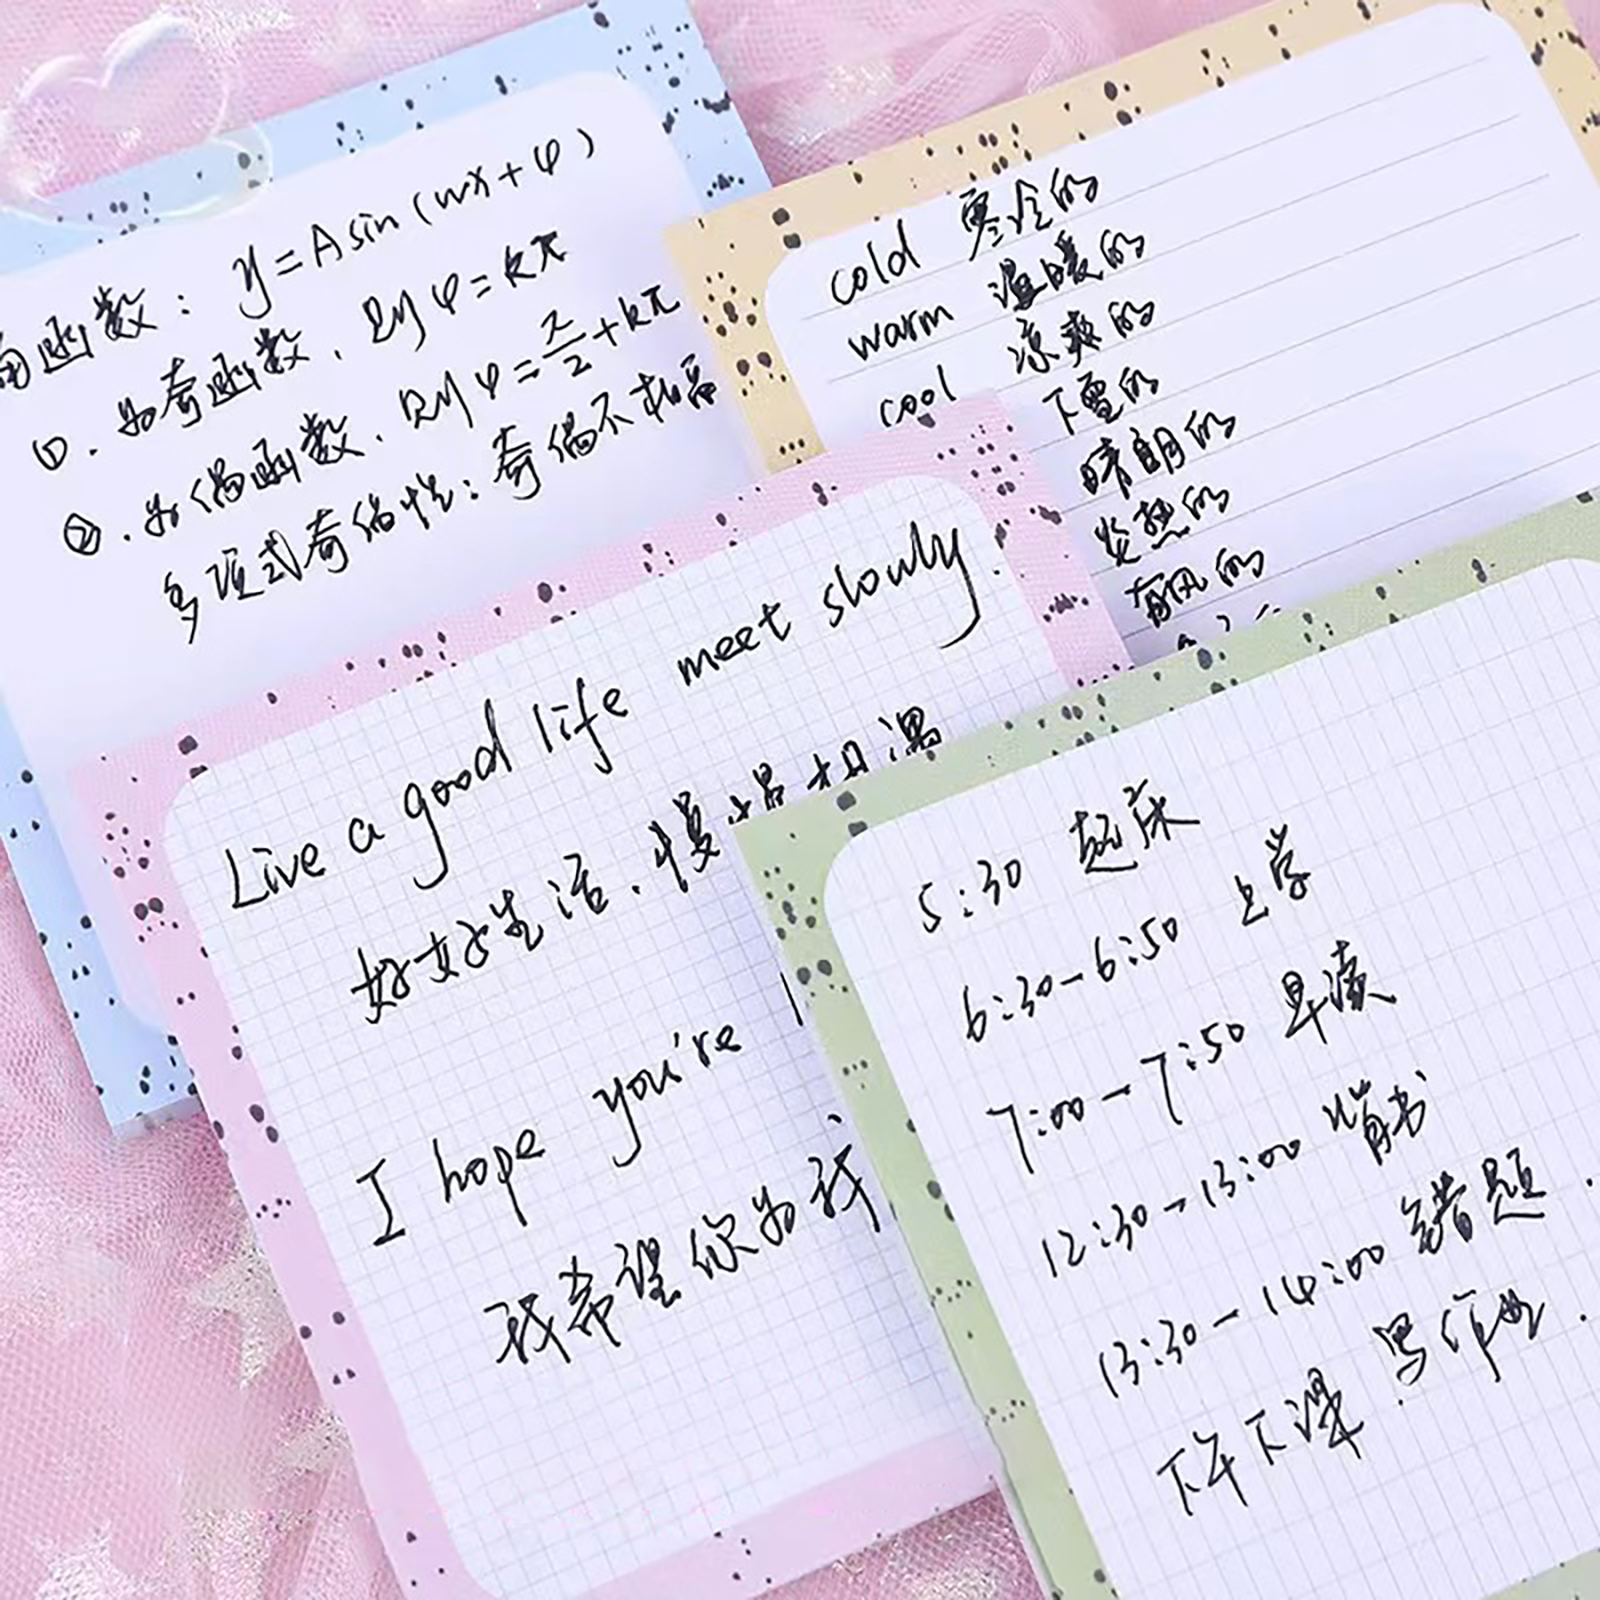 角函数： y=Asin(wx+φ)
①. 为奇函数, 则φ=kπ
②. 为偶函数, 则φ=π/2+kπ
多项式奇偶性：奇偶不相
cold 寒冷的
warm 温暖的
cool 凉爽的
下雪的
晴朗的
炎热的
有风的
Live a good life meet slowly.
好好生活.慢慢相遇
I hope you're
我希望你为我
5:30 起床
6:30-6:50 上学
7:00-7:50 早读
12:30-13:00 背书
13:30-14:00 错题.
下午下课.写作业.